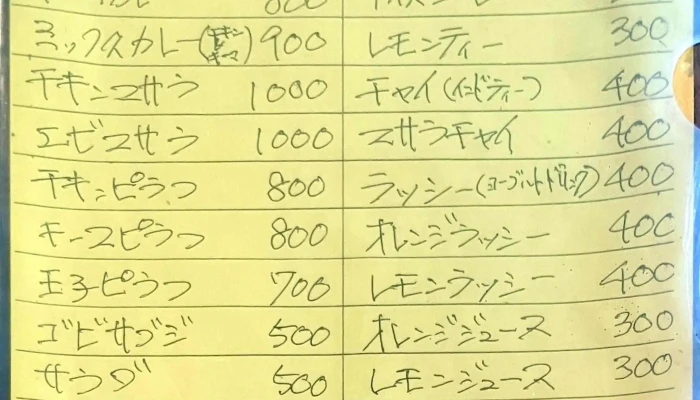 800
ミックスカレー(チキンとキーマ) 900
チキンマサラ 1000
エビマサラ 1000
チキンピラフ 800
キーマピラフ 800
玉子ピラフ 700
ゴビサブジ 500
サラダ 500
レモンティー 300
チャイ(インドティー) 400
マサラチャイ 400
ラッシー(ヨーグルトドリンク) 400
オレンジラッシー 400
レモンラッシー 400
オレンジジュース 300
レモンジュース 300